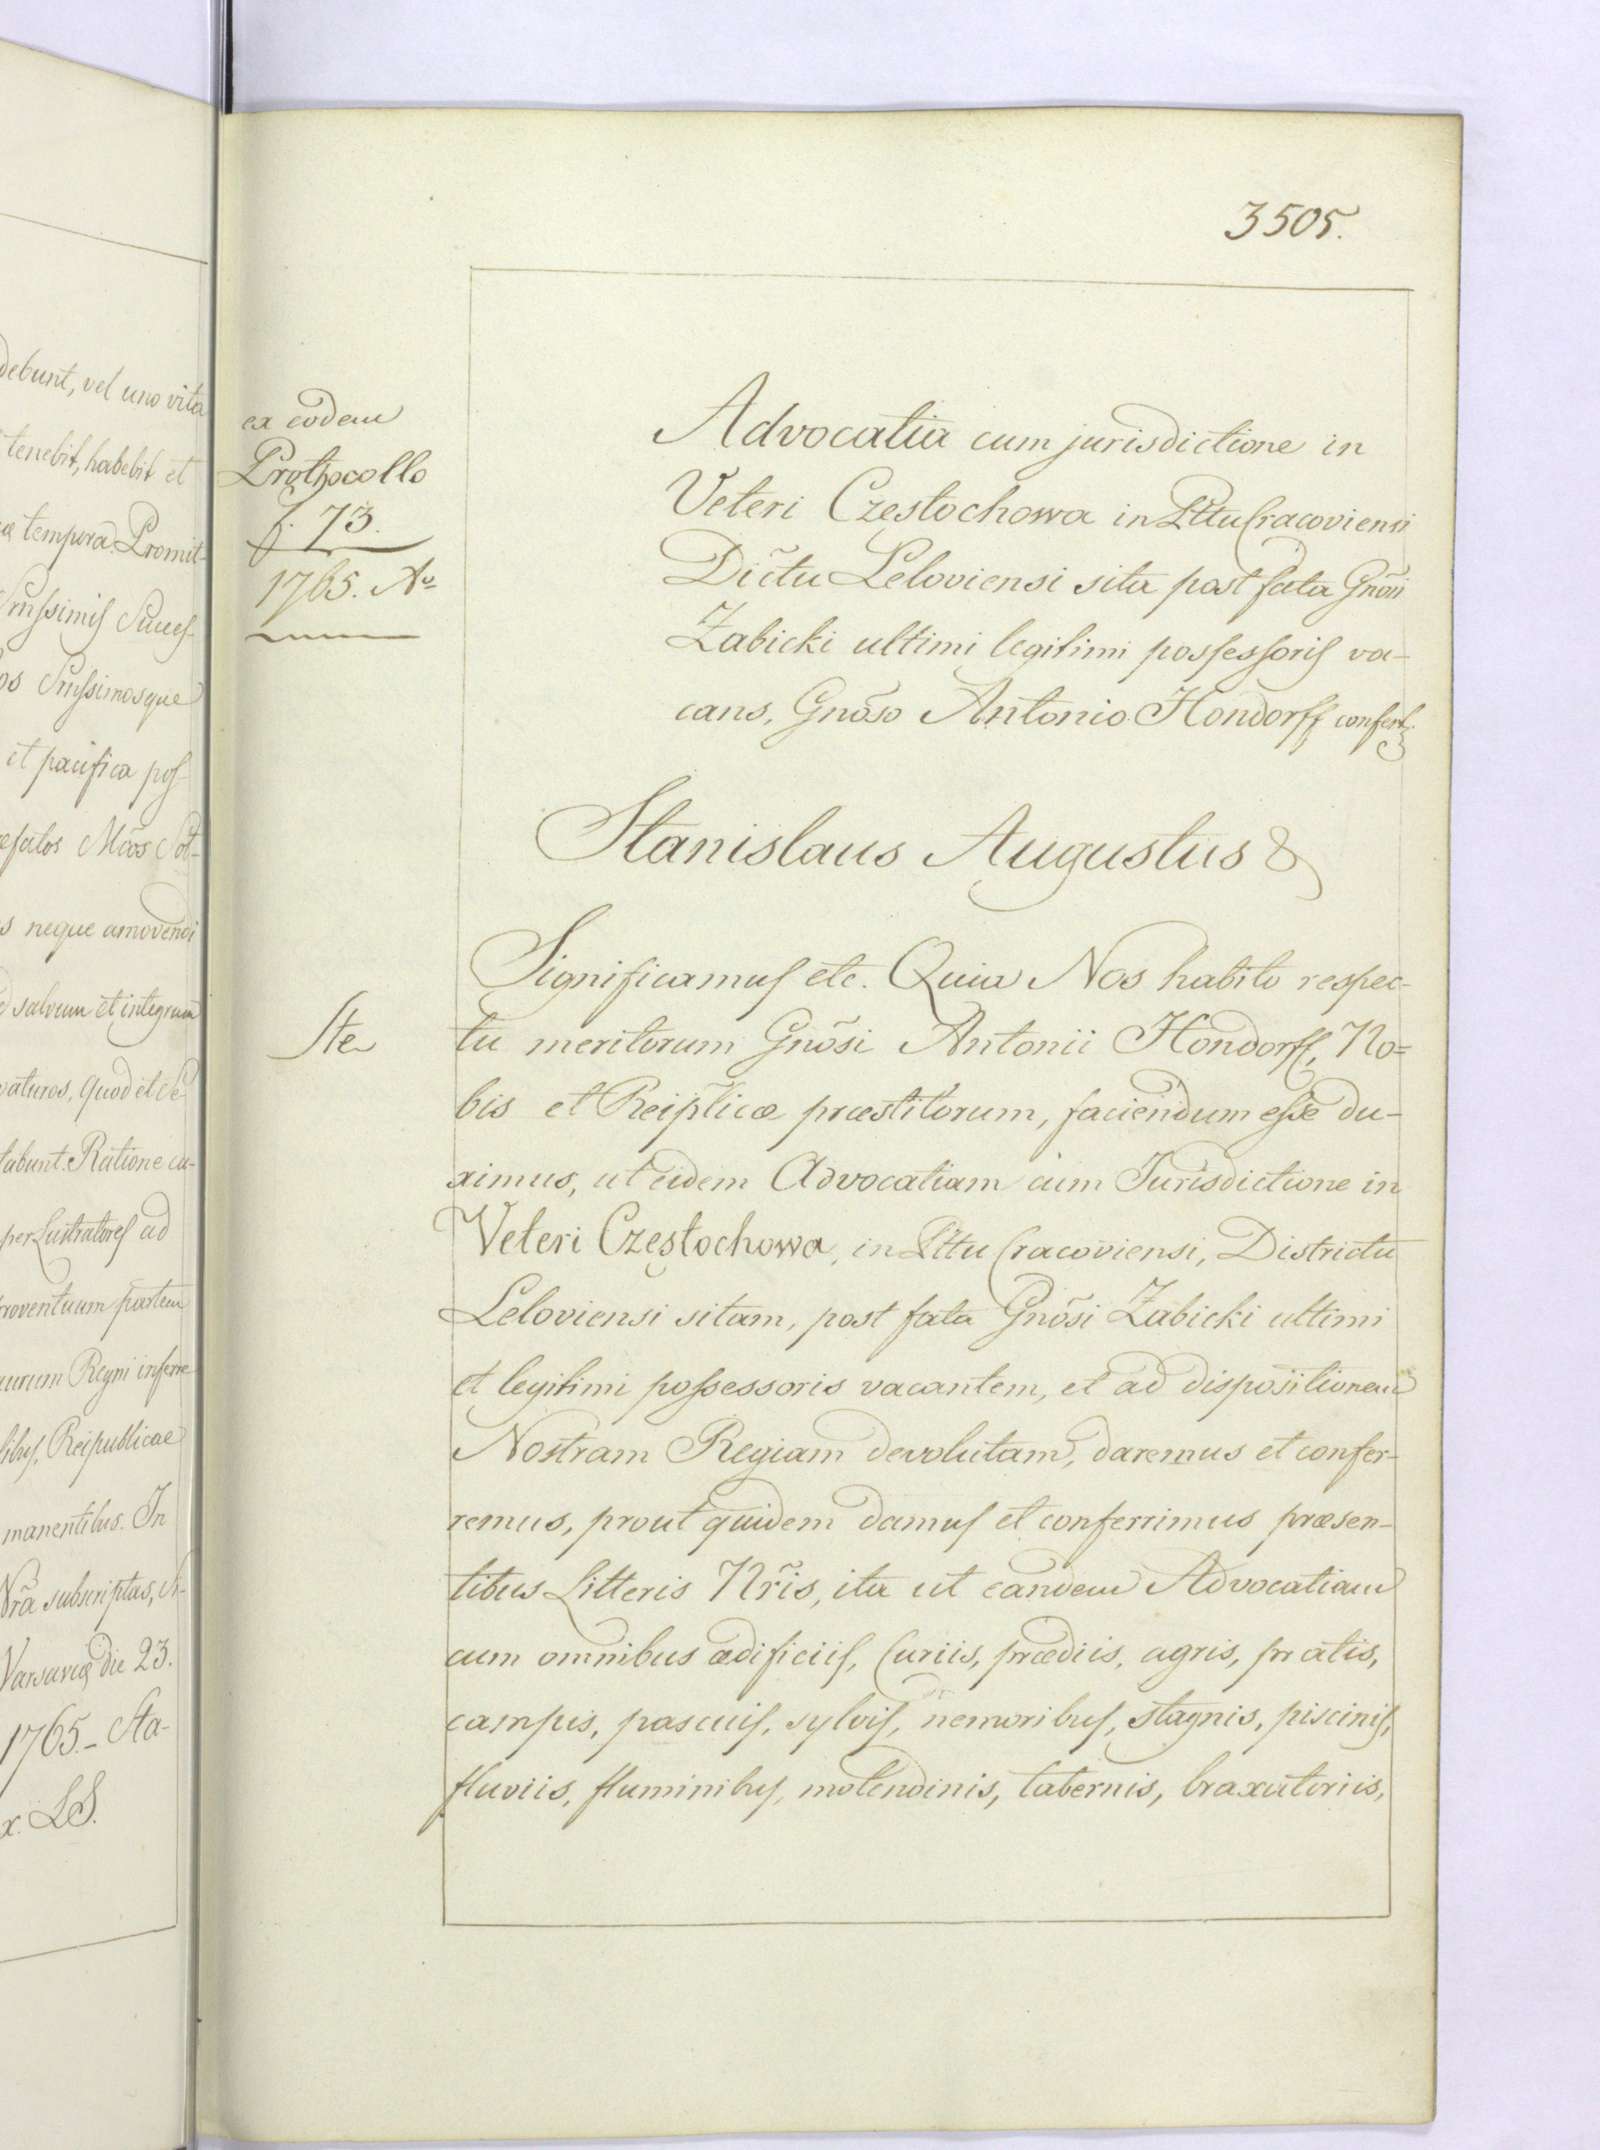 debunt, vel uno vita
tenebit, habebit et
tempora. Promit-
Srnissimis Succes-
os Srnissimosque
et pacifica pos-
Mcos
s neque amovendi
salvum et integrum
vaturos, quod et Se-
tabunt. Ratione au-
per Lustratores ad
roventuum partem
Regni inferre
Reipublicae
manentibus. In
Nrã subscriptas,
Varsaviæ die 23.
1765.- Sta-
x. LS.
3505.
ex eodem
Prothocollo
f. 73.
1765. Aº
Ste
Advocatia cum jurisdictione in
Veteri Częstochowa in Pttu Cracoviensi
Dictu Leloviensi sita post fata Gnõsi
Zabicki ultimi legitimi possessoris va-
cans, Gnõso Antonio Hondorff confert.
Stanislaus Augustus &
Significamus etc. Quia Nos habito respec-
tu meritorum Gnõsi Antonii Hondorff, No=
bis et Reiplicæ præstitorum, faciendum esse du-
ximus, ut eidem Advocatiam cum Jurisdictione in
Veteri Częstochowa, in Pttu Cracoviensi, Districtu
Leloviensi sitam, post fata Gnõsi Zabicki ultimi
et legitimi possessoris vacantem, et ad dispositionem
Nostram Regiam devolutam, daremus et confer-
remus, prout quidem damus et conferrimus præsen-
tibus Litteris Nr̃is, ita ut eandem Advocatiam
cum omnibus ædificiis, Curiis, prædiis, agris, pratis,
campis, pascuis, sylvis, nemoribus, stagnis, piscinis,
fluviis, fluminibus, molendinis, tabernis, braxatoriis,